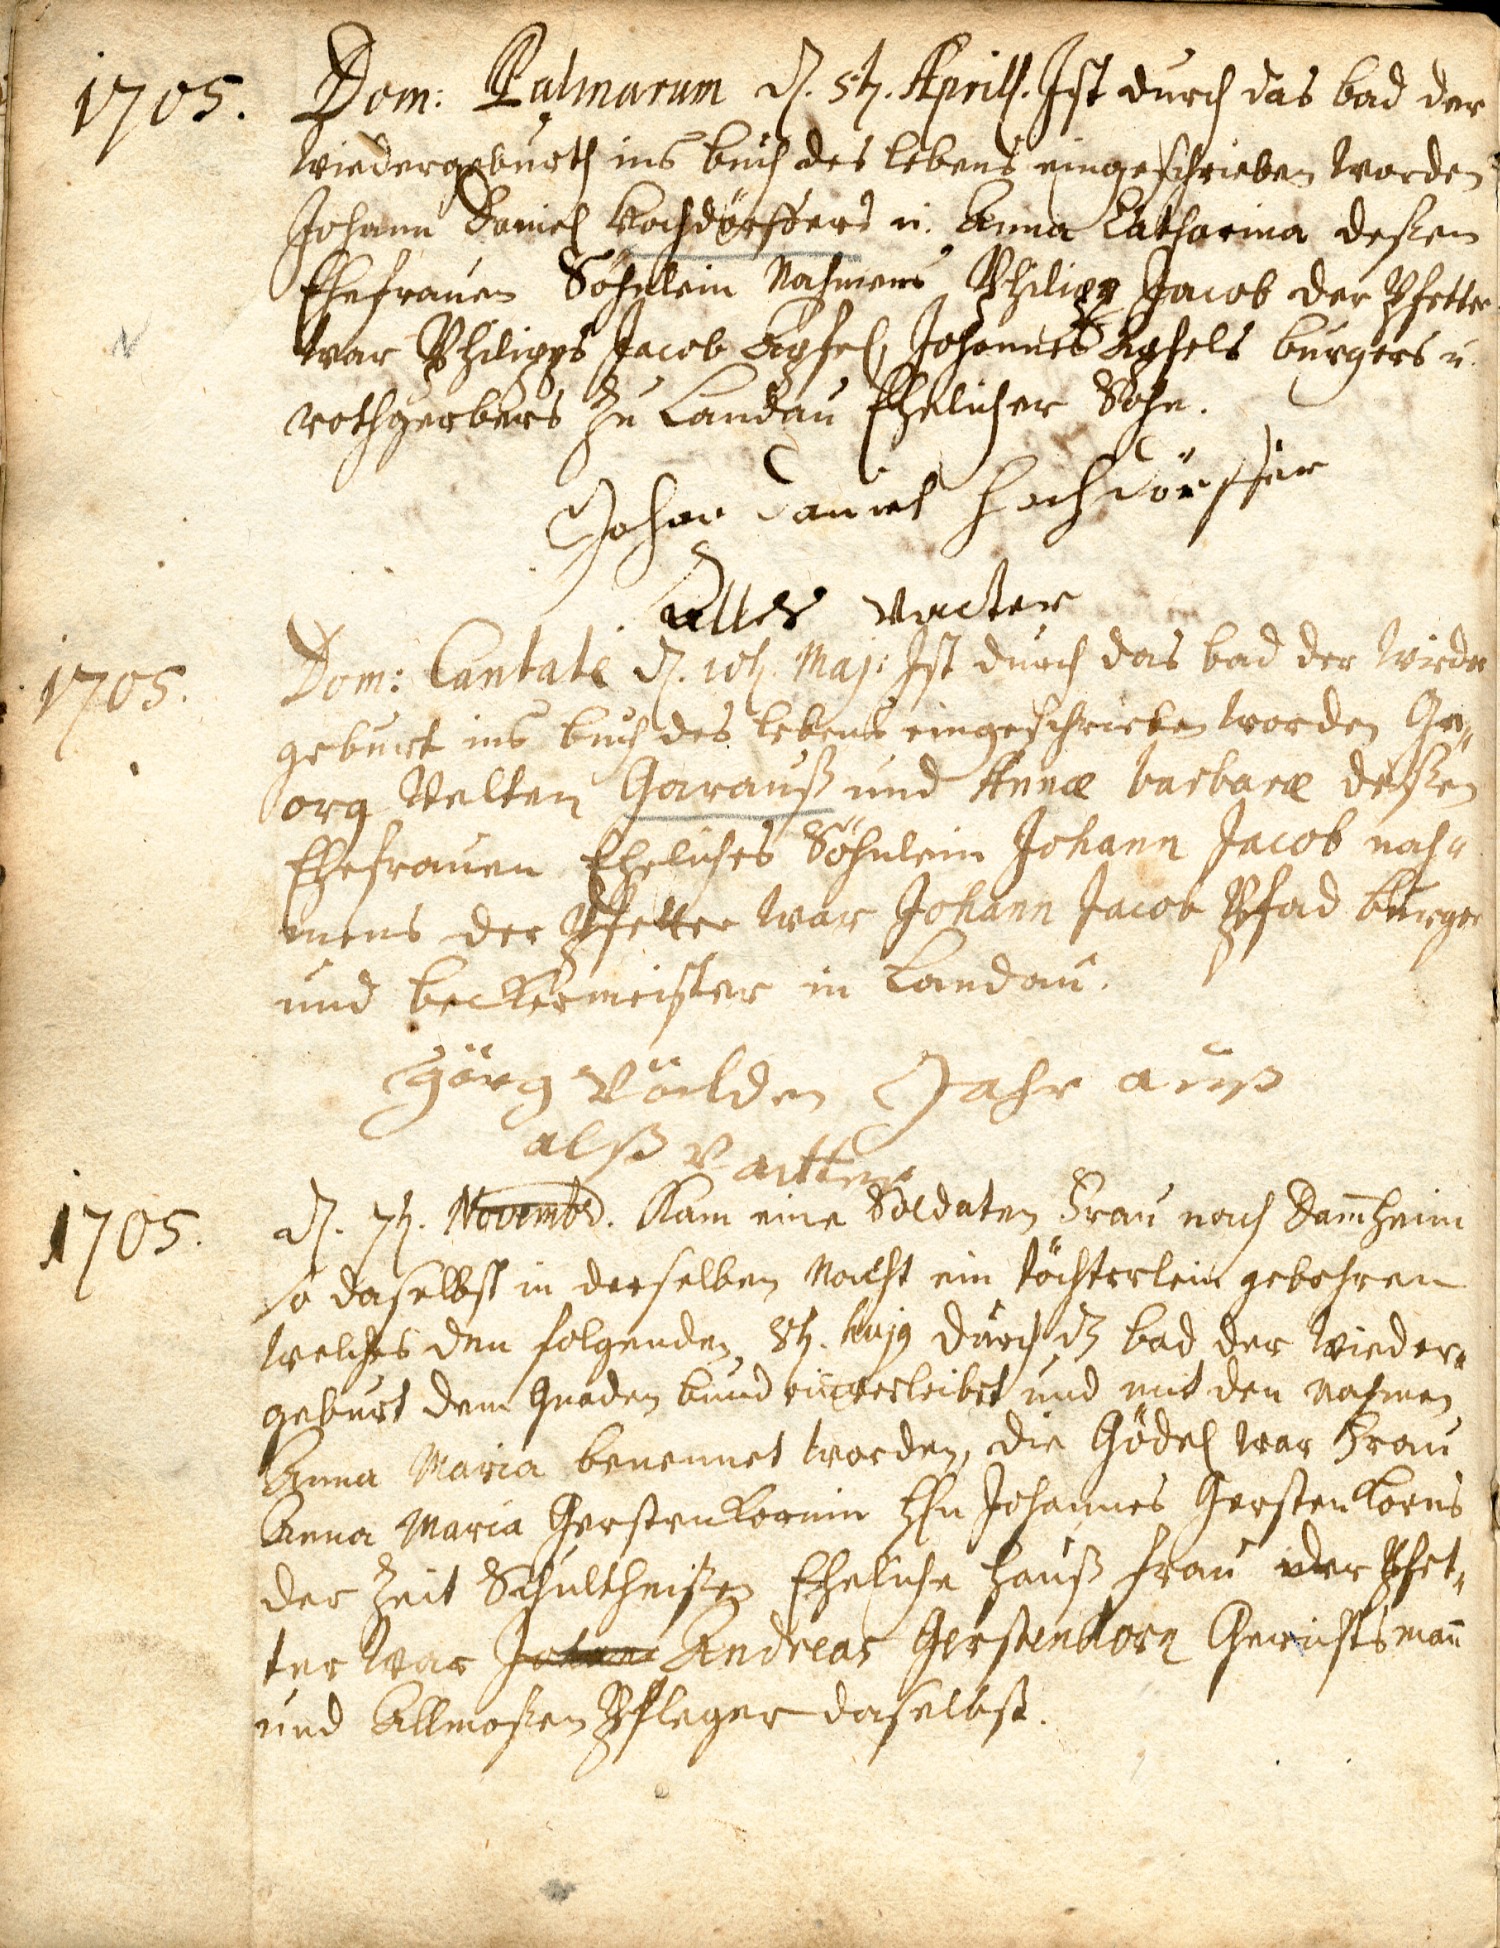 1705. Dom: Palmarum d. 5ten. Aprill. Ist durch das bad der
wiedergeburth ins buch des lebens eingeschrieben worden
Johann Daniel Hochdörffers u. Anna Catharina deßen
Ehefrauen Söhnlein Nahmens Philipp Jacob der Pfetter
war Philipps Jacob Apfel, Johannes Apfels burgers u.
rothgerbers zu Landau Ehelicher Sohn.
Johan Daniel Hochdörffer
Alls vatter
1705. Dom: Cantate d. 10ten. Maj: Ist durch das bad der wieder
geburt ins buch des lebens eingeschrieben worden Ge-
org Velten Garauß und Annæ barbaræ deßen
Ehefrauen Eheliches Söhnlein Johann Jacob nah-
mens der Pfetter war Johann Jacob Pfad burger
und beckermeister in Landau.
Görg Välden Jahr auß
alß vatter
1705. d. 7ten. Novembr. Kam eine Soldaten Frau nach Dam̄heim
so daselbst in derselben Nacht ein töchterlein gebohren
welches den folgenden 8ten. hujus durch dz bad der wieder-
geburt dem Gnaden bund einverleibet und mit den nahmen
Anna Maria benennet worden, die Gödel war Frau
Anna Maria Gerstenkornin Hn Johannes Gerstenkorns
der Zeit Schultheißen Eheliche Hauß frau der Pfet-
ter war Johann Andreas Gerstenkorn Gerichtsman̄
und Allmoßen Pfleger daselbst.